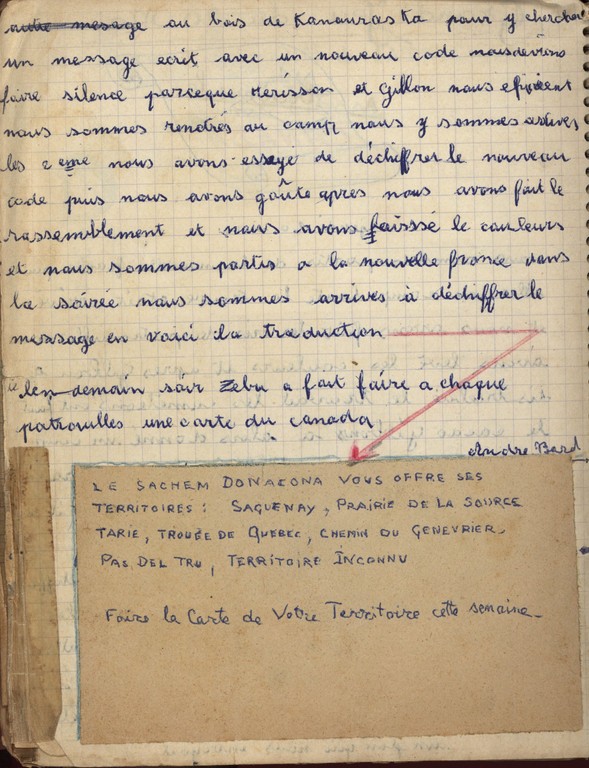 autre mesage au bois de Kanouraska pour y chercher
un message ecrit avec un nouveau code nous devions
faire silence parceque Herisson et Gillon nous
nous sommes rendrés au camp nous y sommes arrives
les 2 eme nous avons essaye de déchiffrer le nouveau
code puis nous avons goûte apres nous avons fait le
rassemblement et nous avons baissé le couleurs
et nous sommes partis a la nouvelle france dans
la soirée nous sommes arrives à déchiffrer le
message en voici la traduction
le lendemain soir Zebu a fait faire a chaque
patrouilles une carte du canada
Andre Bard
LE SACHEM DONACONA VOUS OFFRE SES
TERRITOIRES : SAGUENAY, PRAIRIE DE LA SOURCE
TARIE, TROUÉE DE QUEBEC, CHEMIN DU GENEVRIER
PAS DEL TRU, TERRITOIRE INCONNU
Faire la Carte de Votre Territoire cette semaine